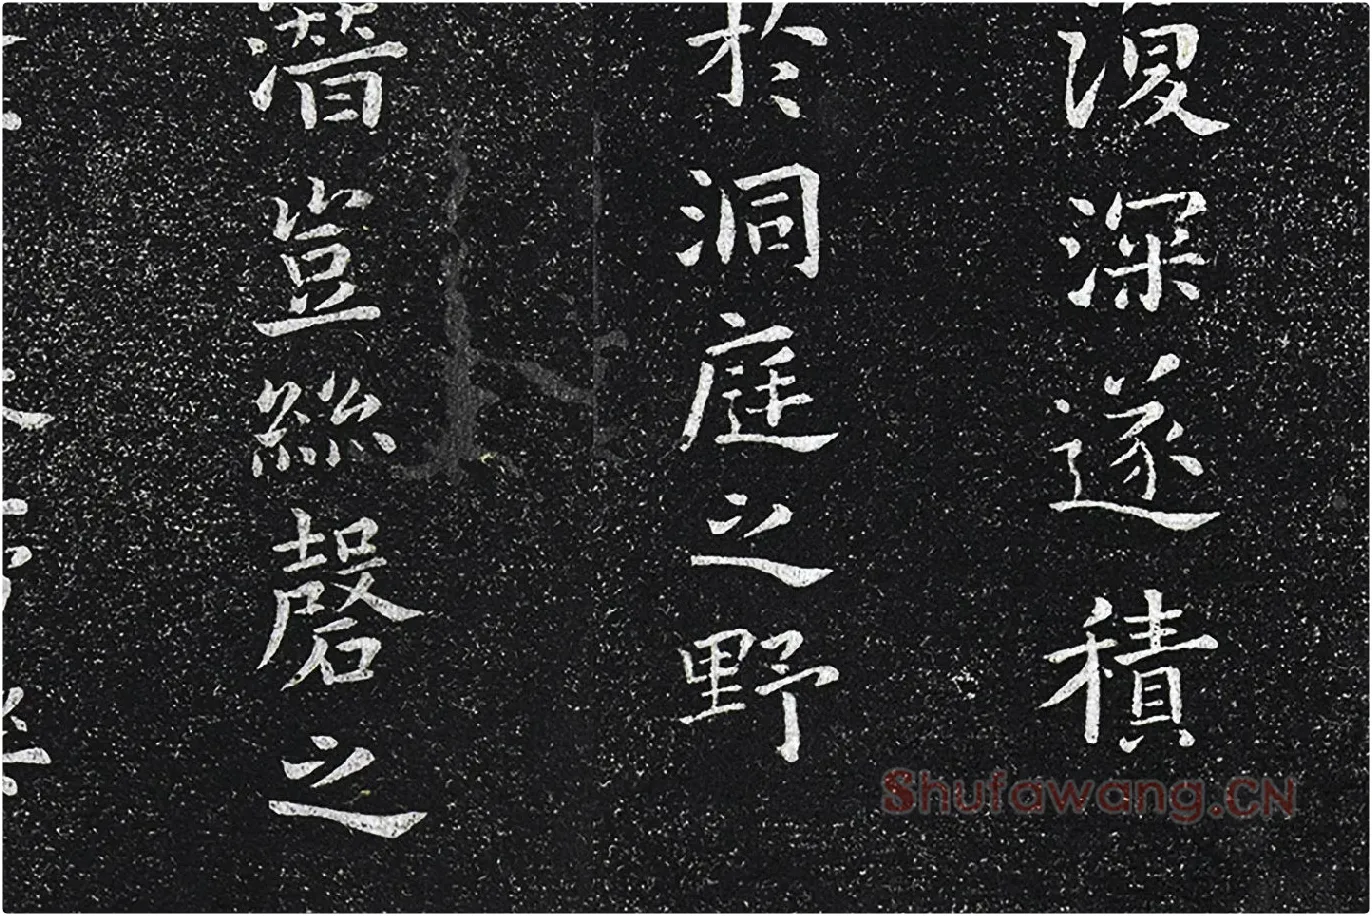 深遂積
於洞庭之野
潛豈絲磬之